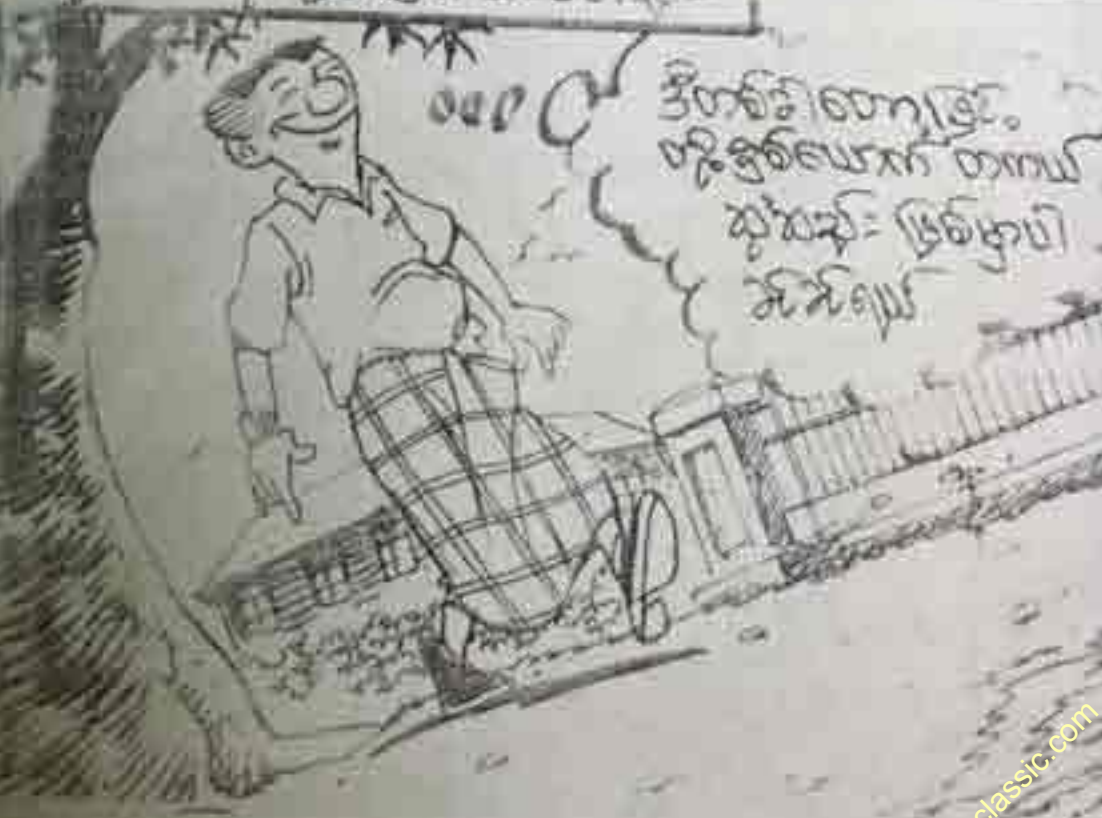 ဒီတစ်ခါတော့ဖြင့်
တို့နှစ်ယောက် တကယ်
ဆုံစည်း ဖြစ်မှာပါ
ခင်ခင်ရယ်
classic.com